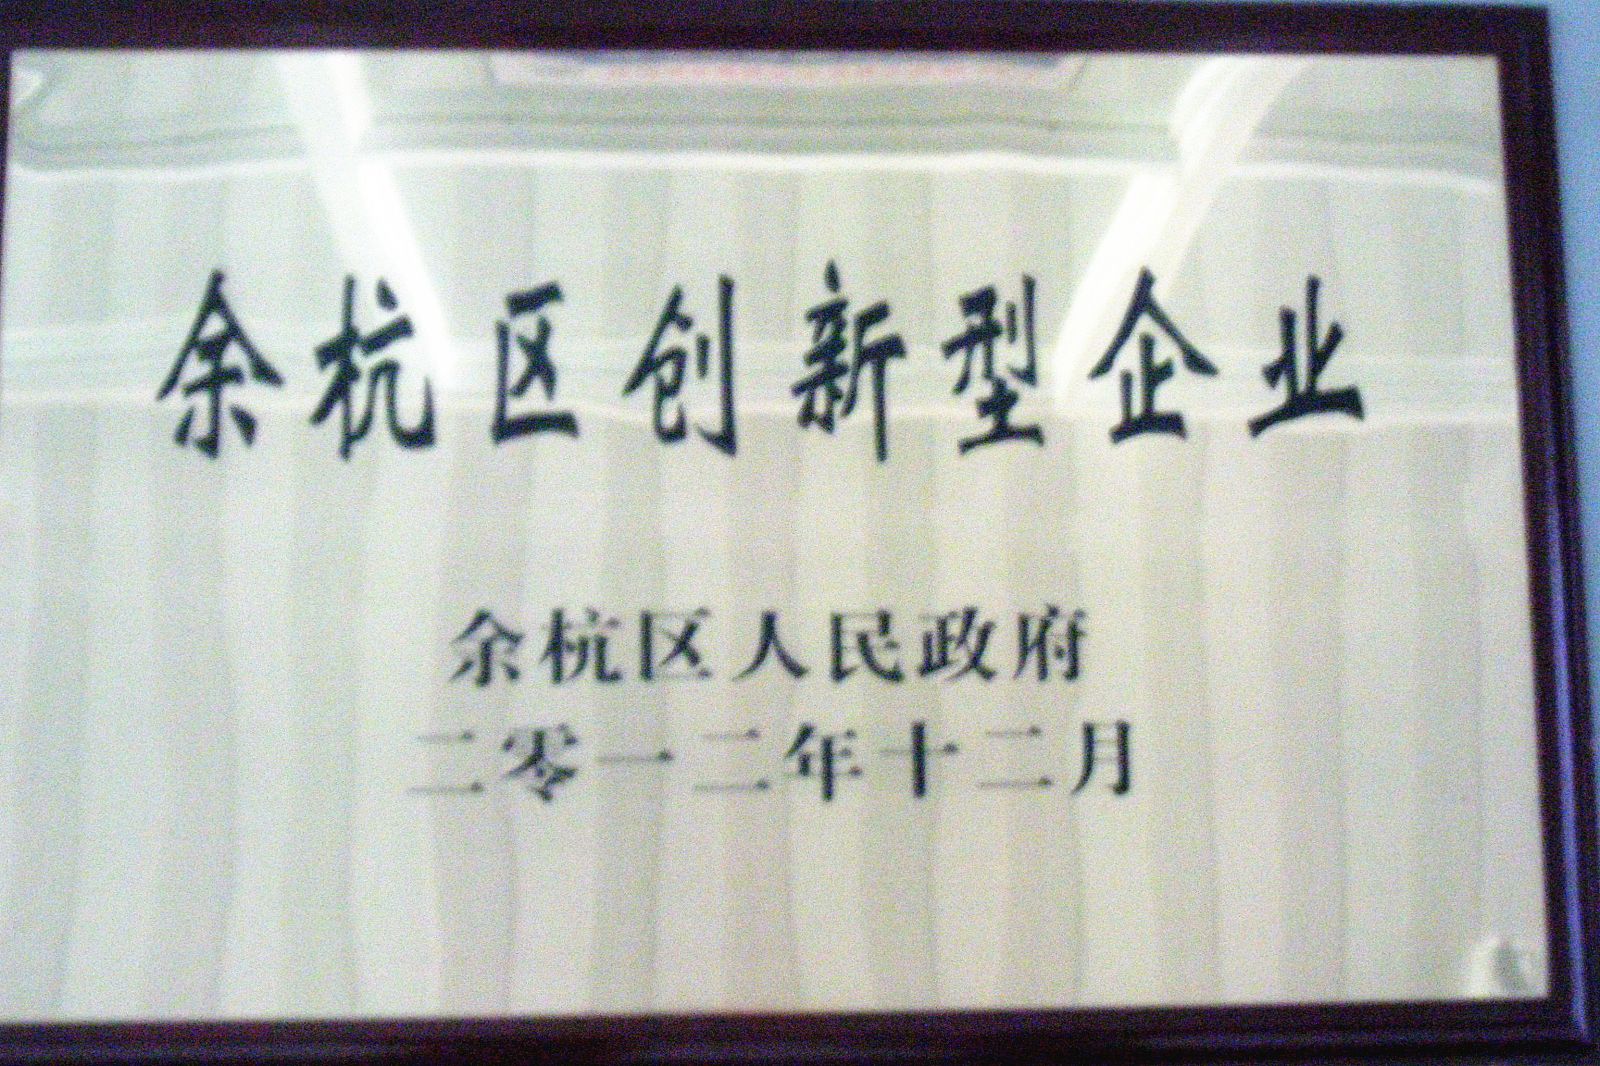 余杭区创新型企业
余杭区人民政府
二零一二年十二月